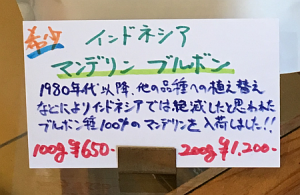 希少
インドネシア
マンデリン ブルボン
1980年代以降、他の品種への植え替え
などによりインドネシアでは絶滅したと思われた
ブルボン種100%のマンデリンを入荷しました!!
100g ¥650- 200g ¥1,200-